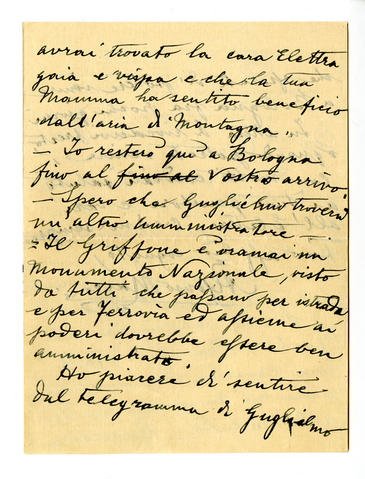 avrai trovato la cara Elettra
gaia e vispa e che la tua
Mamma ha sentito beneficio
dall'aria di Montagna
— Io resterò qui a Bologna
fino al fino al Vostro arrivo
— Spero che Guglielmo troverà
un'altro amministratore —
— Il Griffone è oramai un
Monumento Nazionale, visto
da tutti che passano per istrada
e per Ferrovia ed assieme ai
poderi dovrebbe essere ben
amministrato
Ho piacere di sentire
dal telegramma di Guglielmo